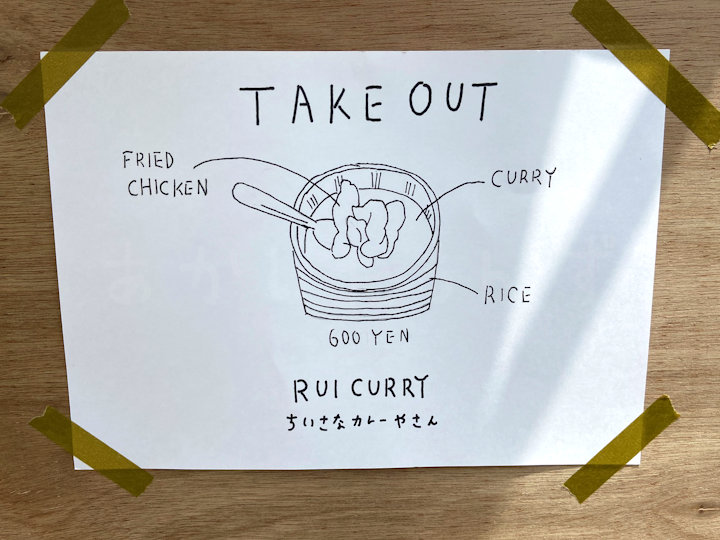 TAKE OUT
FRIED
CHICKEN
CURRY
RICE
600 YEN
RUI CURRY
ちいさなカレーやさん